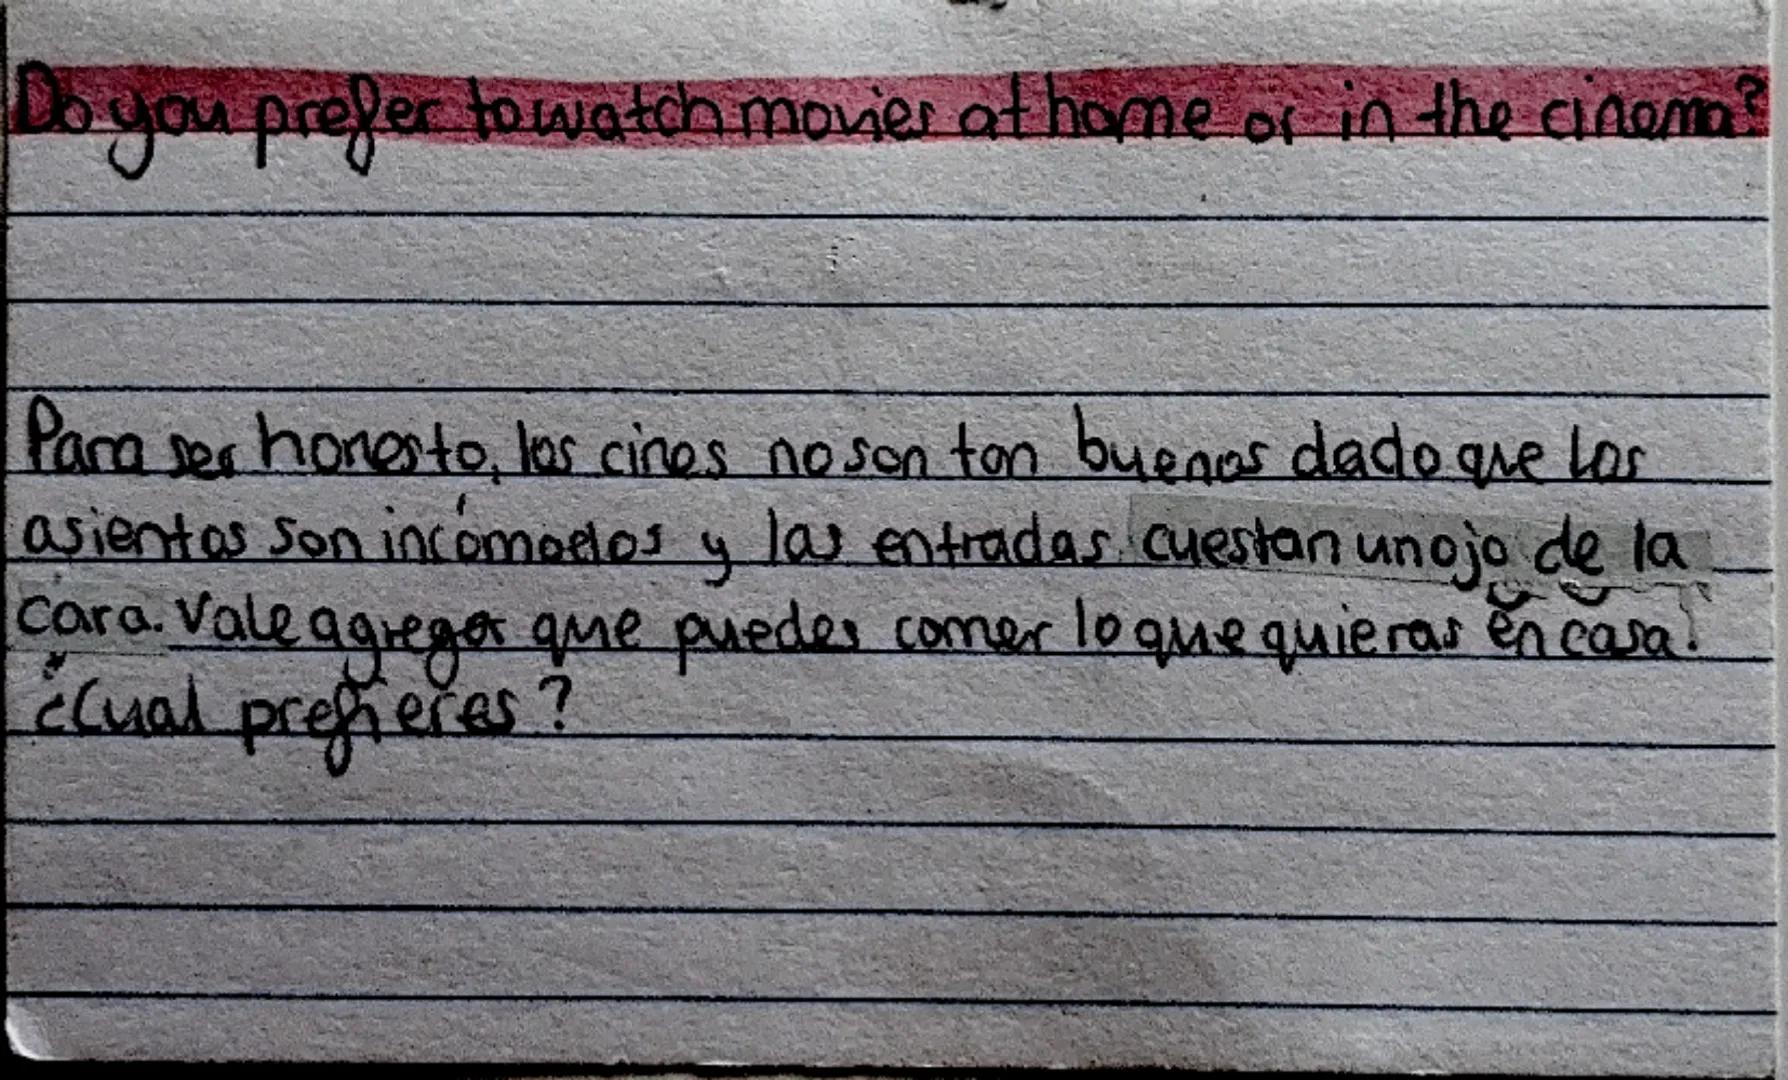 Do you prefer to watch movies at home or in the cinema?
Para ser honesto, los cines no son tan buenos dado que los
asientos son incómodos y las entradas cuestan un ojo de la
cara. Vale agregar que puedes comer lo que quieras en casa.
¿Cual prefieres?